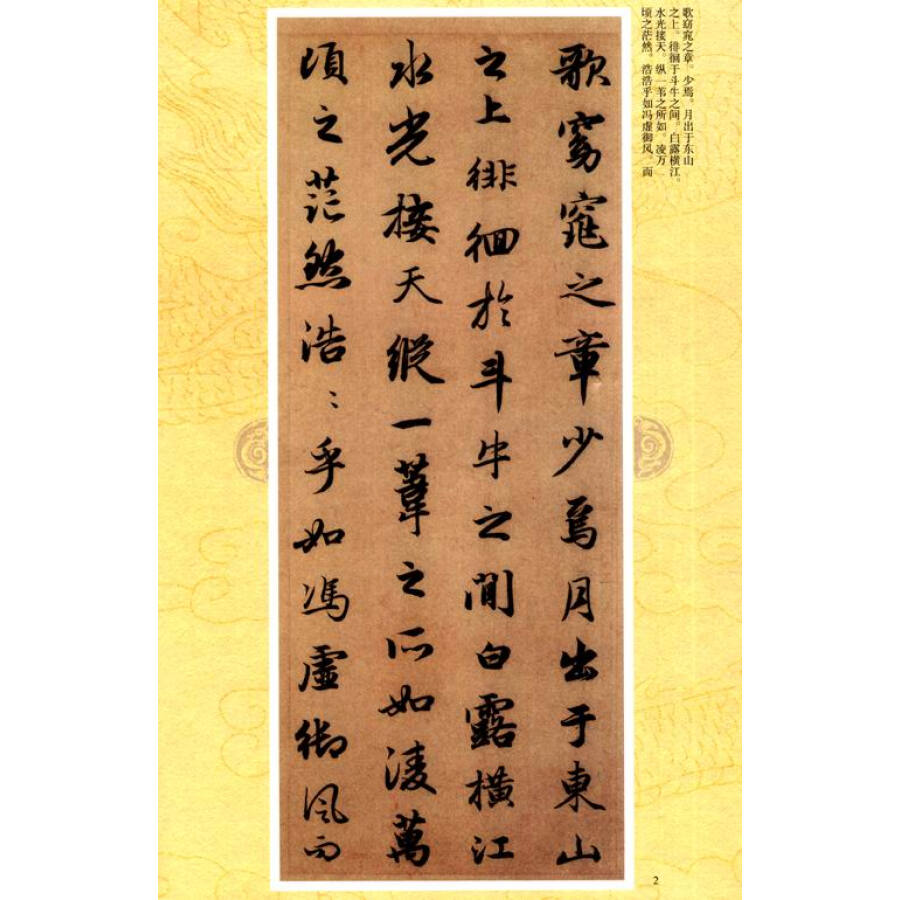 歌窈窕之章。少焉。月出于东山
之上。徘徊于斗牛之间。白露横江。
水光接天。纵一苇之所如。凌万
顷之茫然。浩浩乎如冯虚御风。而
歌窈窕之章少焉月出于東山
之上徘徊於斗牛之間白露橫江
水光接天縱一葦之所如凌萬
頃之茫然浩〻乎如馮虛御風而
2